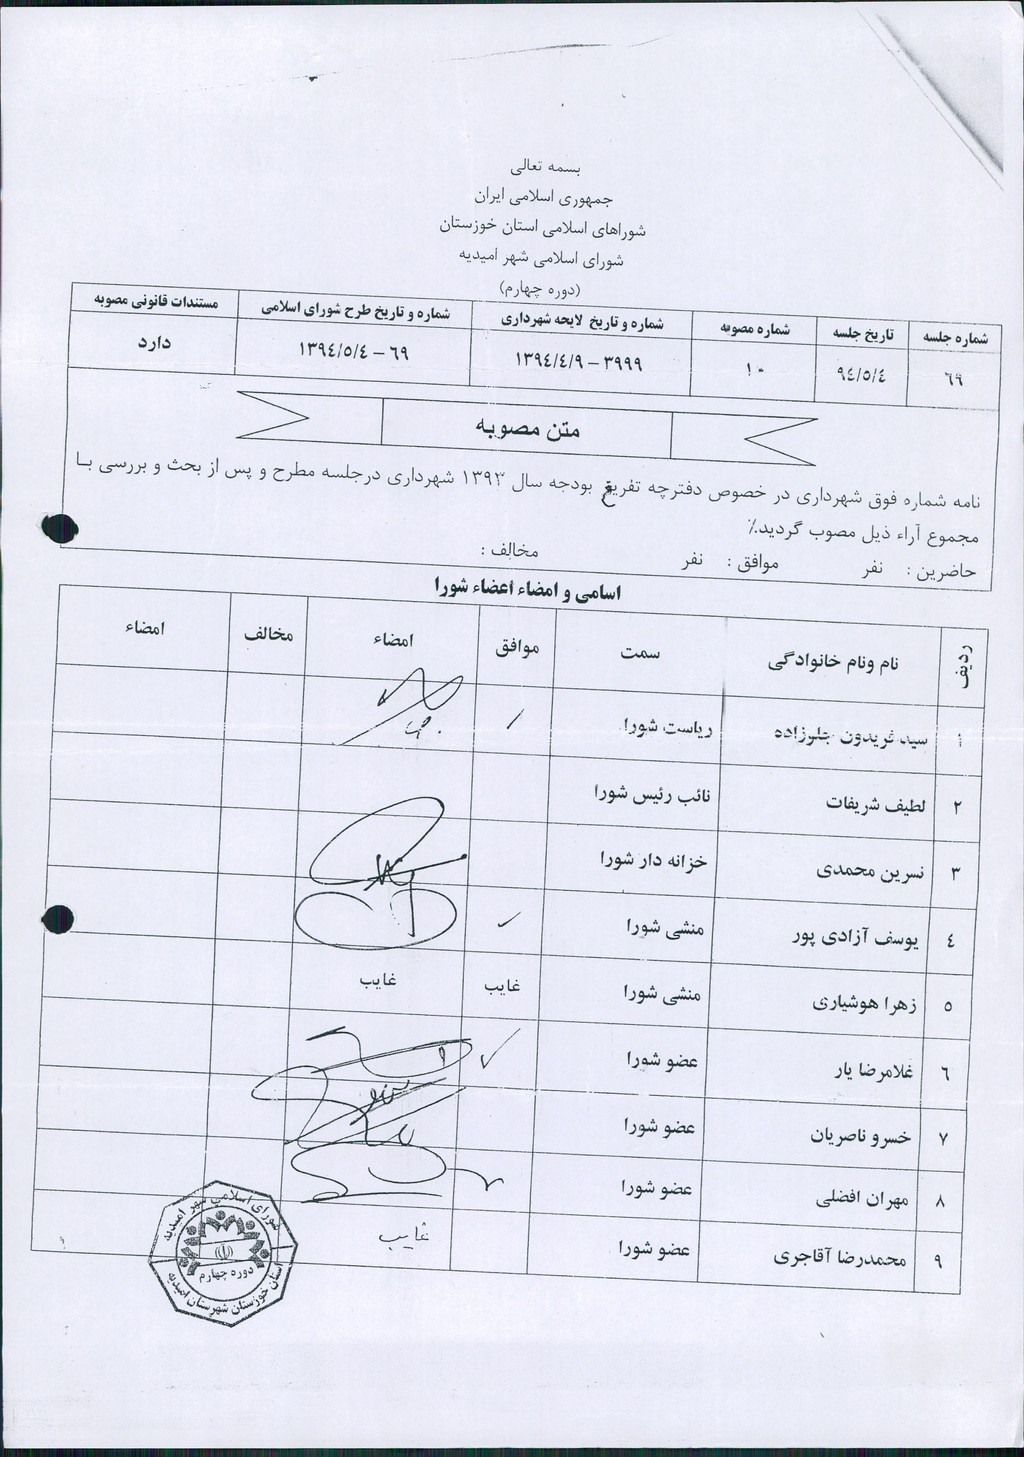 بسمه تعالی
جمهوری اسلامی ایران
شوراهای اسلامی استان خوزستان
شورای اسلامی شهر امیدیه
(دوره چهارم)
شماره جلسه تاریخ جلسه شماره مصوبه شماره و تاریخ لایحه شهرداری شماره و تاریخ طرح شورای اسلامی مستندات قانونی مصوبه
۶۹ ۹٤/٥/٤ ۱۰ ۳۹۹۹ – ۱۳۹٤/٤/۹ ۶۹ – ۱۳۹٤/٥/٤ دارد
متن مصوبه
نامه شماره فوق شهرداری در خصوص دفترچه تفریغ بودجه سال ۱۳۹۳ شهرداری درجلسه مطرح و پس از بحث و بررسی بـا
مجموع آراء ذیل مصوب گردید.٪
حاضرین : نفر موافق : نفر مخالف :
اسامی و امضاء اعضاء شورا
ردیف نام ونام خانوادگی سمت موافق امضاء مخالف امضاء
۱ سید فریدون جلیزاده ریاست شورا
۲ لطیف شریفات نائب رئیس شورا
۳ نسرین محمدی خزانه دار شورا
٤ یوسف آزادی پور منشی شورا
٥ زهرا هوشیاری منشی شورا غایب غایب
٦ غلامرضا یار عضو شورا
۷ خسرو ناصریان عضو شورا
۸ مهران افضلی عضو شورا
۹ محمدرضا آقاجری عضو شورا غایب
شورای اسلامی شهر امیدیه
دوره چهارم
استان خوزستان شهرستان امیدیه